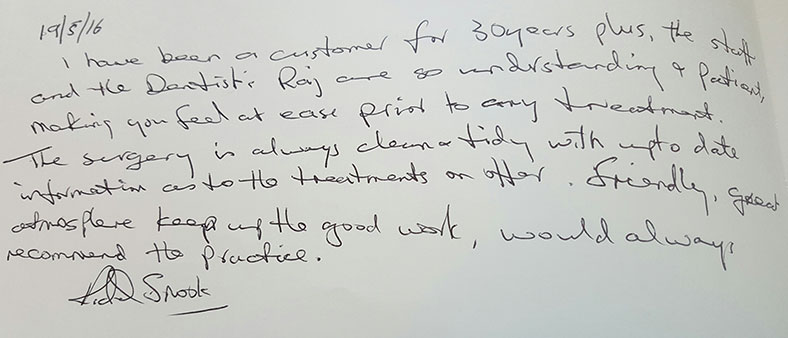 19/5/16
I have been a customer for 30years plus, the staff
and the Dentist's Raj are so understanding & patient,
making you feel at ease prior to any treatment.
The surgery is always clean & tidy with upto date
information as to the treatments on offer. Friendly, great
atmosphere keep up the good work, would always
recommend the practice.
Snook